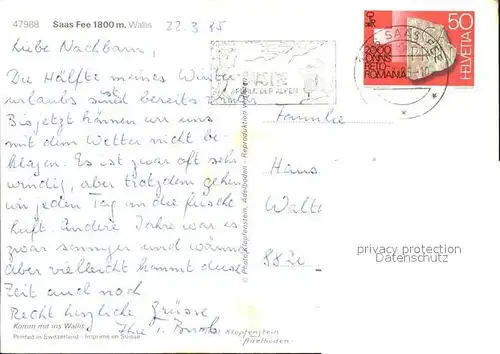 47988 Saas Fee 1800 m. Wallis
22.3.85
Liebe Nachbarn,
Die Hälfte meines Winter-
urlaubs sind bereits
Bisjetzt können wir uns
mit dem Wetter nicht be-
klagen. Es ist zwar oft sehr
windig, aber trotzdem gehen
wir jeden Tag an die frische
Luft. Andere Jahre war es
zwar sonniger und wärmer
aber vielleicht kommt diese
Zeit auch noch
Recht herzliche Grüsse
Ihre T.
Komm mit ins Wallis
Printed in Switzerland - Imprimé en Suisse
© Photo Klopfenstein, Adelboden - Reproduktion
Klopfenstein
Adelboden
PERLE DER ALPEN
SAAS-FEE
2000
ONNS
RETO-
ROMANIA
50
HELVETIA
Familie
Hans
Walte
882
privacy protection
Datenschutz